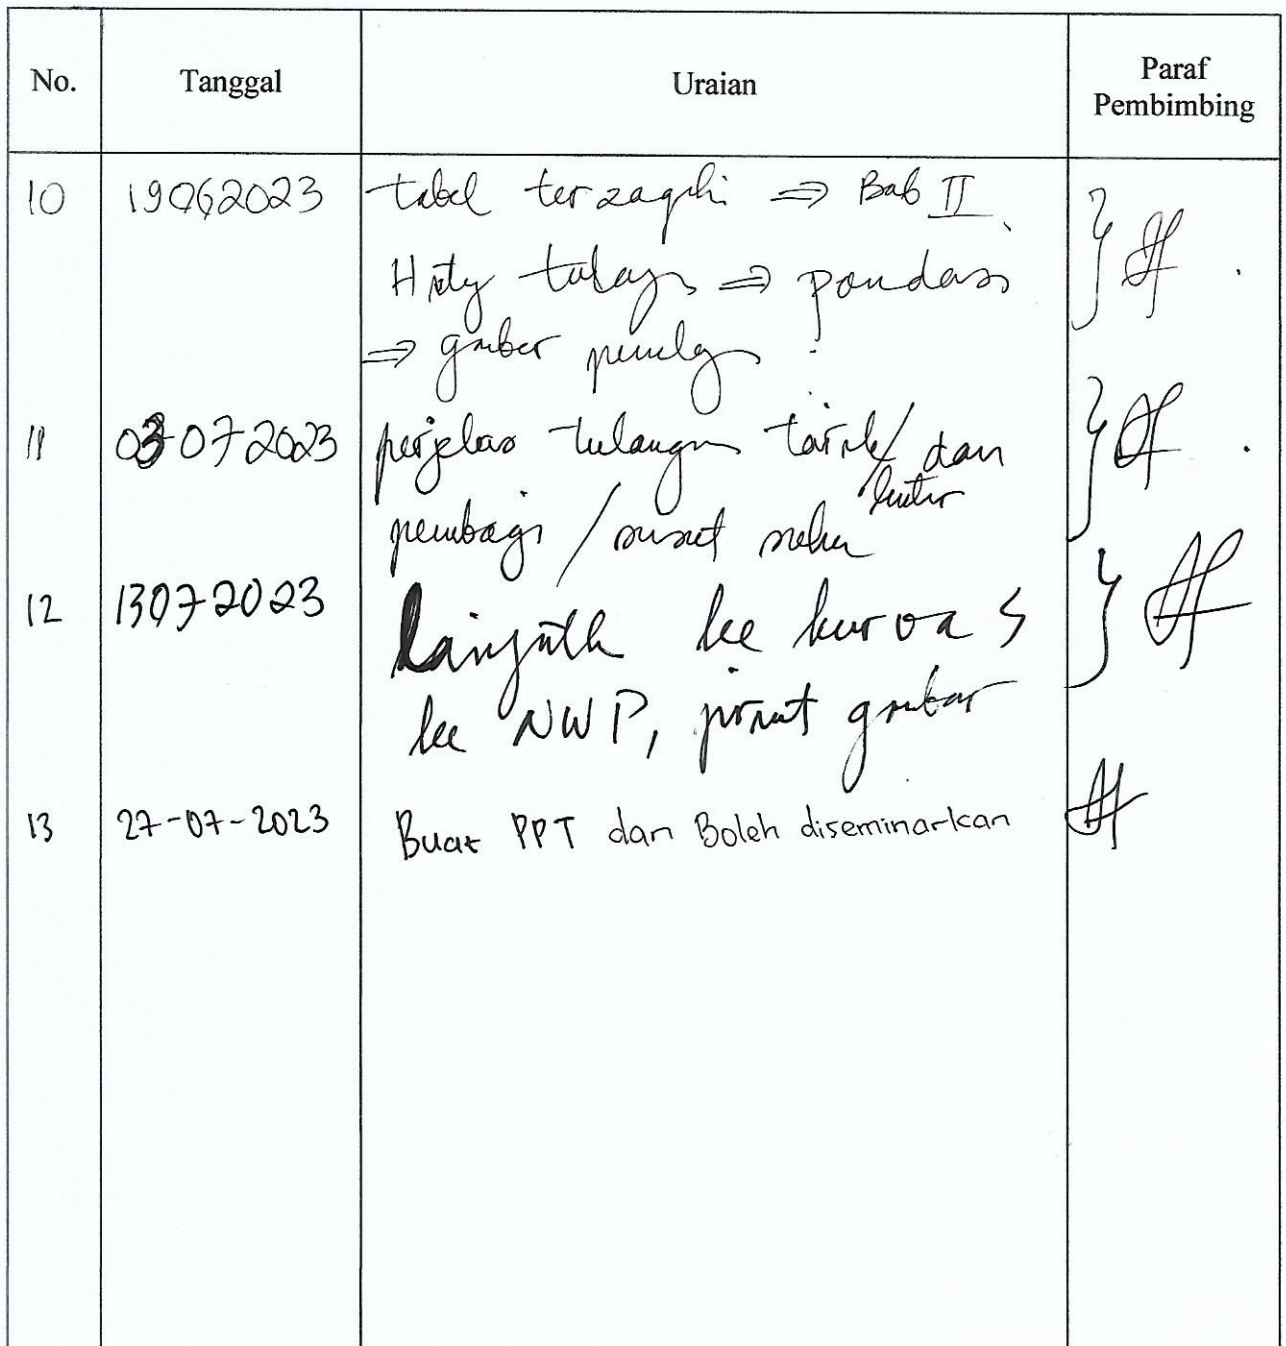 No. Tanggal Uraian Paraf Pembimbing
10 19062023 tabel terzaghi ⇒ Bab II
Hitg tulang ⇒ pondasi
⇒ gambar
11 03-07-2023 perjelas tulangan tarik/ dan
lentur
pembagi / susut suhu
12 13072023 Lanjutk ke kurva S
ke NWP, print gambar
13 27-07-2023 Buat PPT dan Boleh diseminarkan